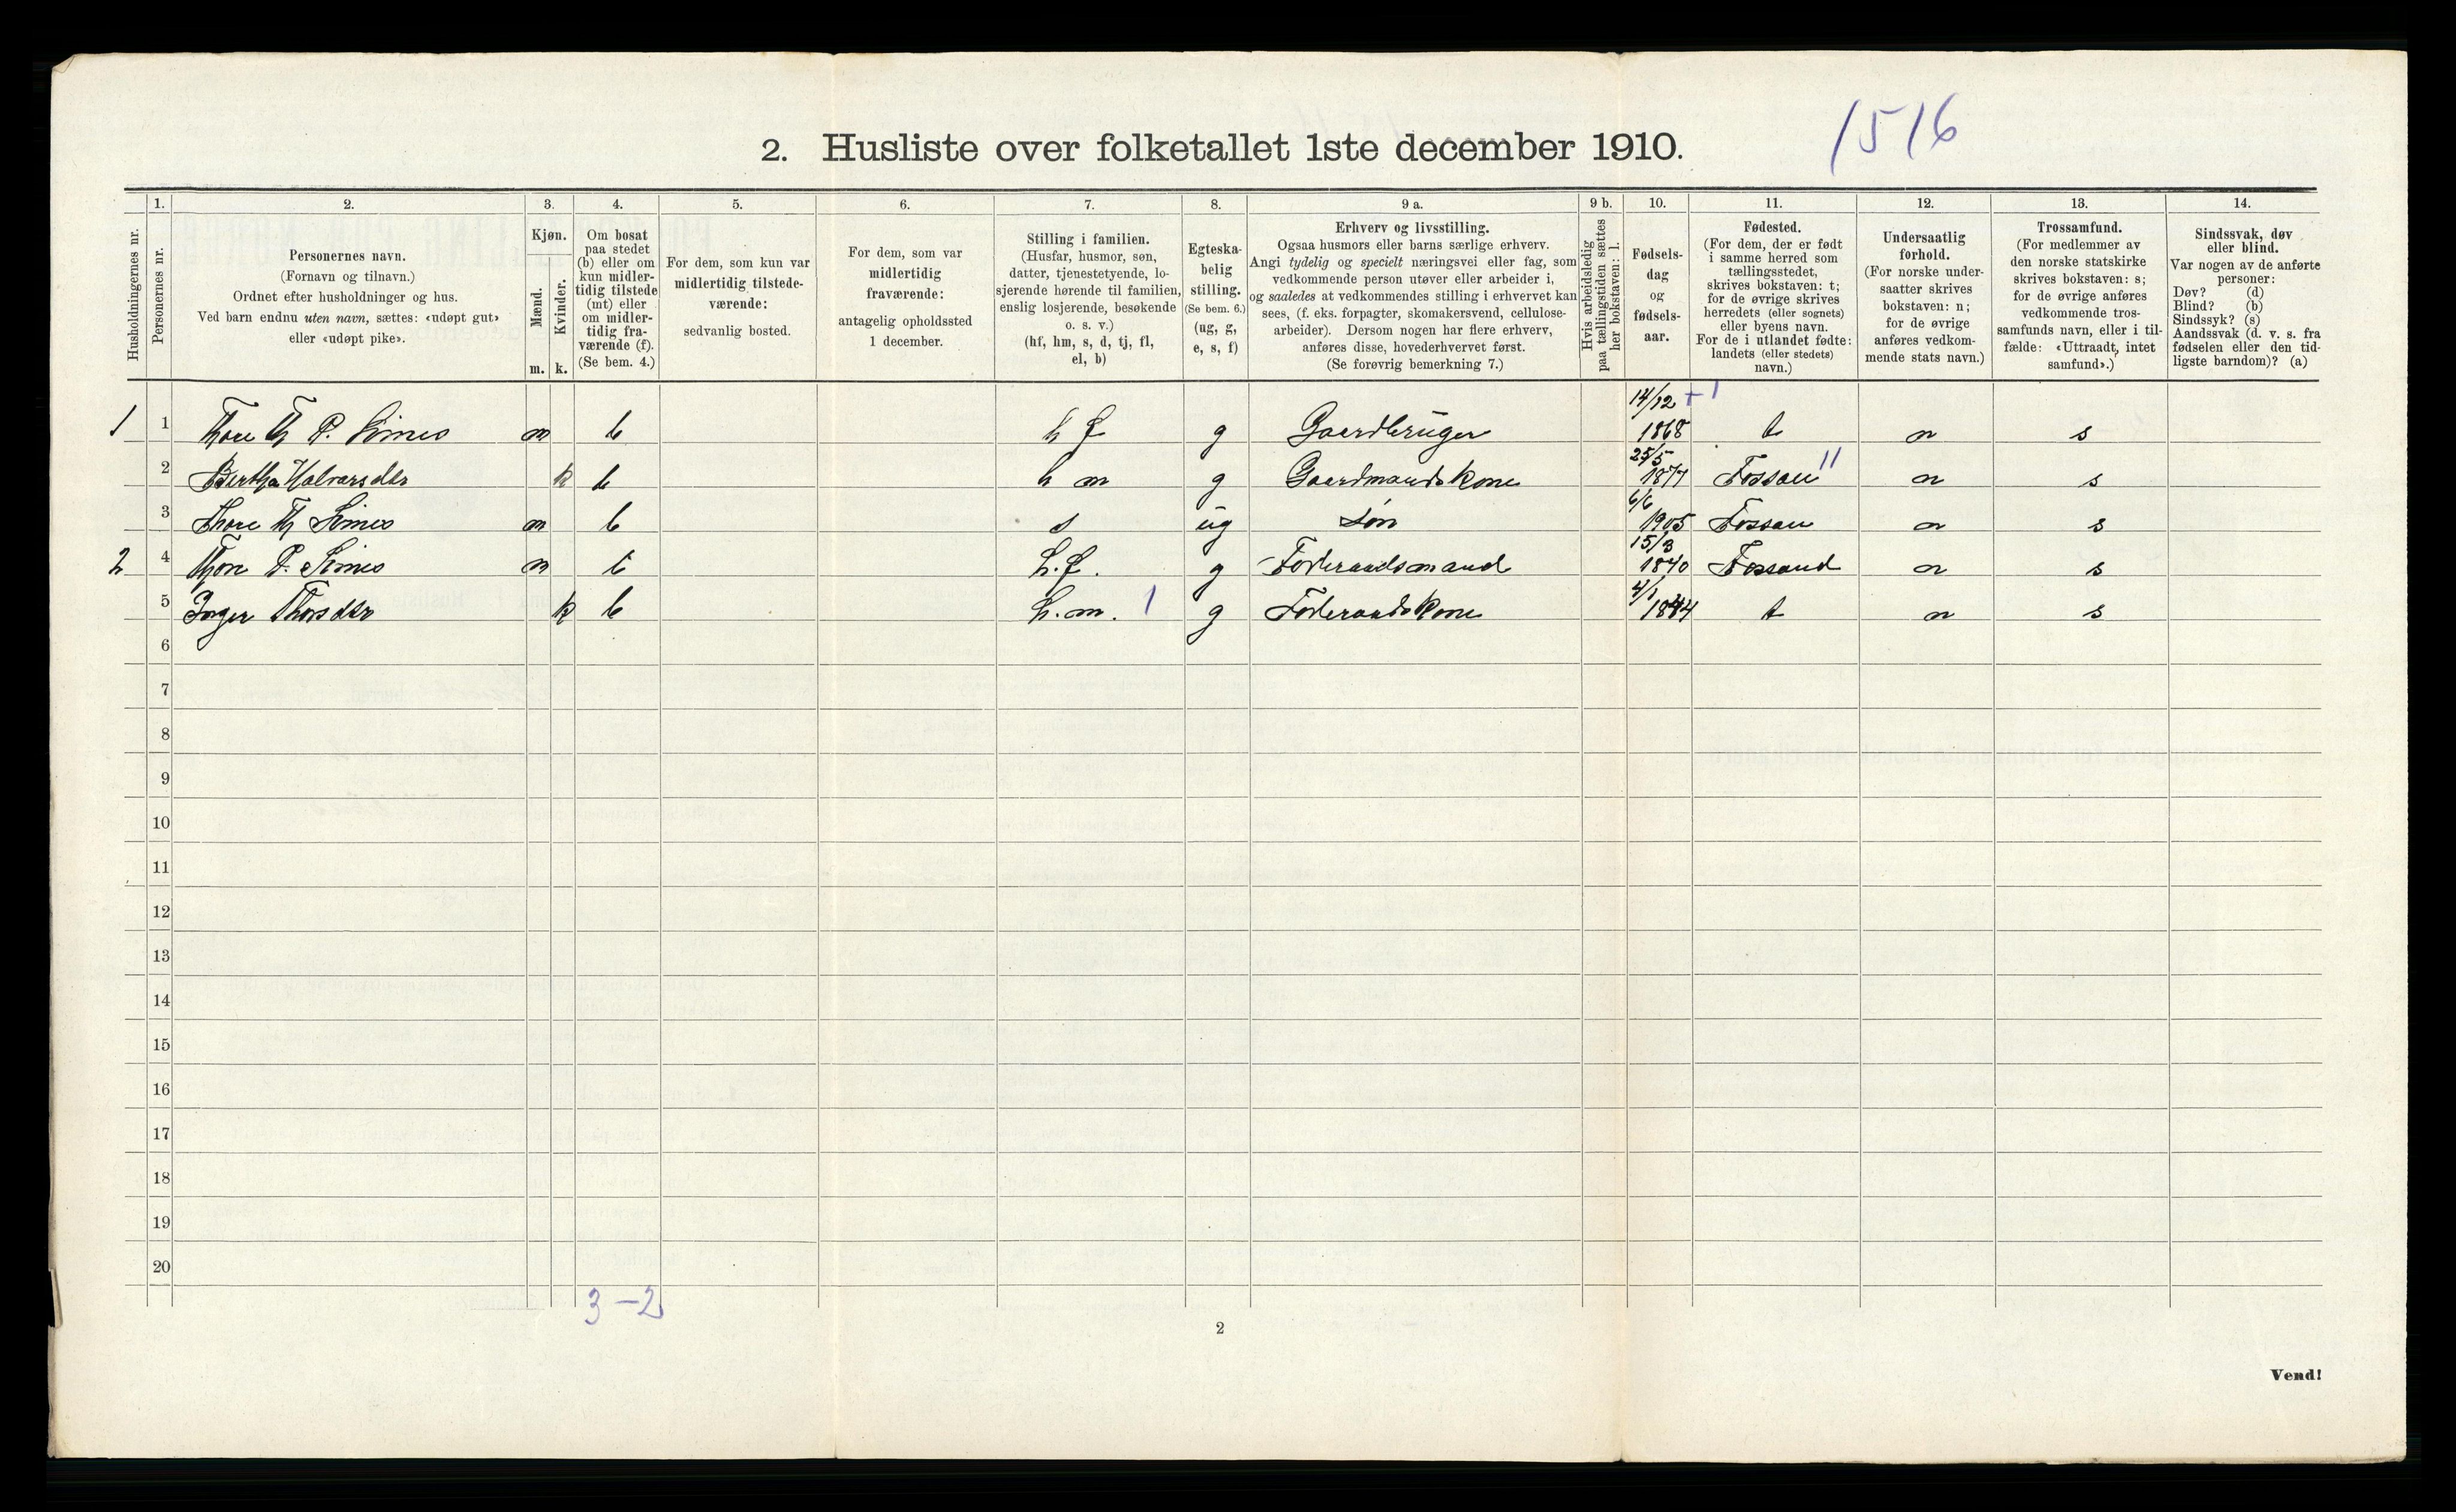 1516
2. Husliste over folketallet 1ste december 1910.
Husholdningernes nr.
1.
Personernes nr.
2.
Personernes navn.
(Fornavn og tilnavn.)
Ordnet efter husholdninger og hus.
Ved barn endnu uten navn, sættes: «udøpt gut»
eller «udøpt pike».
3.
Kjøn.
Mænd.
Kvinder.
m. k.
4.
Om bosat
paa stedet
(b) eller om
kun midler-
tidig tilstede
(mt) eller
om midler-
tidig fra-
værende (f).
(Se bem. 4.)
5.
For dem, som kun var
midlertidig tilstede-
værende:
sedvanlig bosted.
6.
For dem, som var
midlertidig
fraværende:
antagelig opholdssted
1 december.
7.
Stilling i familien.
(Husfar, husmor, søn,
datter, tjenestetyende, lo-
sjerende hørende til familien,
enslig losjerende, besøkende
o. s. v.)
(hf, hm, s, d, tj, fl,
el, b)
8.
Egteska-
belig
stilling.
(Se bem. 6.)
(ug, g,
e, s, f)
9 a.
Erhverv og livsstilling.
Ogsaa husmors eller barns særlige erhverv.
Angi tydelig og specielt næringsvei eller fag, som
vedkommende person utøver eller arbeider i,
og saaledes at vedkommendes stilling i erhvervet kan
sees, (f. eks. forpagter, skomakersvend, cellulose-
arbeider). Dersom nogen har flere erhverv,
anføres disse, hovederhvervet først.
(Se forøvrig bemerkning 7.)
9 b.
Hvis arbeidsledig
paa tællingstiden sættes
her bokstaven: l.
10.
Fødsels-
dag
og
fødsels-
aar.
11.
Fødested.
(For dem, der er født
i samme herred som
tællingsstedet,
skrives bokstaven: t;
for de øvrige skrives
herredets (eller sognets)
eller byens navn.
For de i utlandet fødte:
landets (eller stedets)
navn.)
12.
Undersaatlig
forhold.
(For norske under-
saatter skrives
bokstaven: n;
for de øvrige
anføres vedkom-
mende stats navn.)
13.
Trossamfund.
(For medlemmer av
den norske statskirke
skrives bokstaven: s;
for de øvrige anføres
vedkommende tros-
samfunds navn, eller i til-
fælde: «Uttraadt, intet
samfund».)
14.
Sindssvak, døv
eller blind.
Var nogen av de anførte
personer:
Døv? (d)
Blind? (b)
Sindssyk? (s)
Aandssvak (d. v. s. fra
fødselen eller den tid-
ligste barndom)? (a)
1 1 Thore Th P. Simes m b h f g Gaardbruger 14/12 1868 + 1 t n s
2 Bertha Halvarsdtr k b h m g Gaardmandskone 25/5 1877 Fossan 11 n s
3 Thore Th Simes m b s ug Søn 6/6 1905 Fossan n s
2 4 Thore P. Simes m b h.f. g Føderaadsmand 15/3 1840 Fossand n s
5 Inger Thorsdtr k b h.m. 1 g Føderaadskone 4/1 1844 t n s
6
7
8
9
10
11
12
13
14
15
16
17
18
19
20
3 – 2
2
Vend!